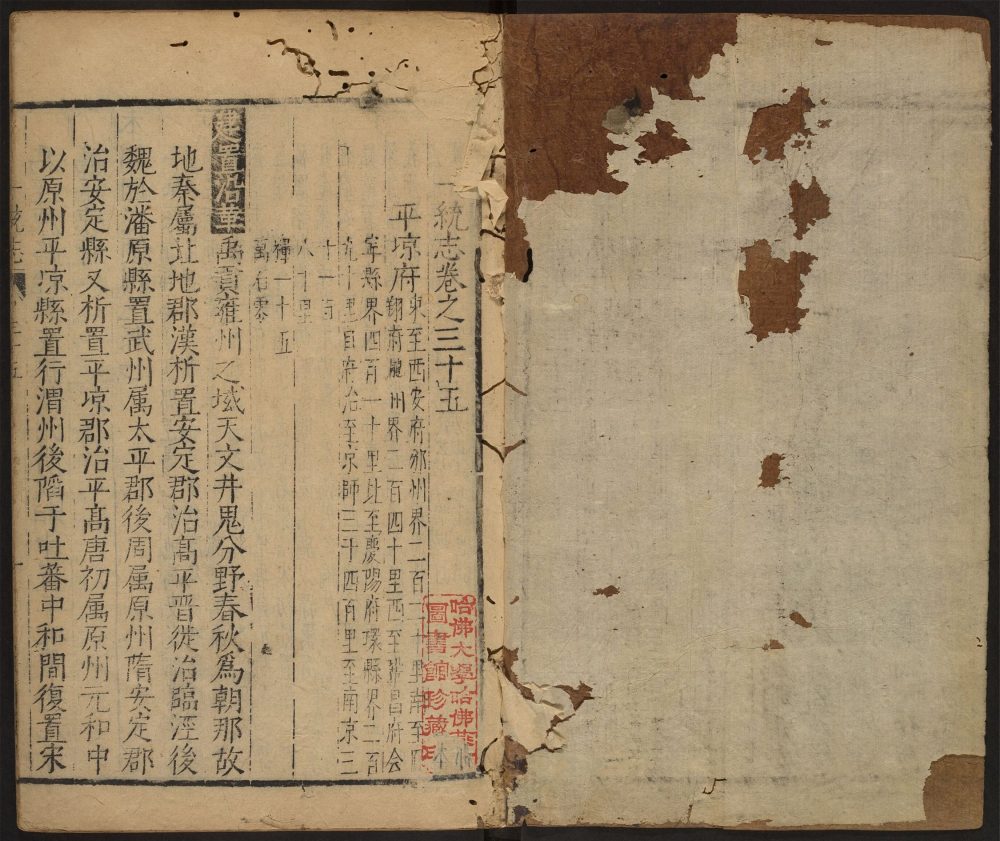 一統志卷之三十五
平凉府東至西安府邠州界二百一十里南至
翔府隴州界二百四十里西至鞏昌府会
寧縣界四百一十里北至慶陽府環縣界二百
九十里自府治至京師三千四百里至南京三
十一百
八十里
禪一十五
萬石零
建置沿革禹貢雍州之域天文井鬼分野春秋為朝那故
地秦屬北地郡漢析置安定郡治髙平晋徙治臨涇後
魏於潘原縣置武州属太平郡後周属原州隋安定郡
治安定縣又析置平凉郡治平髙唐初属原州元和中
以原州平凉縣置行渭州後䧟于吐蕃中和間復置宋
一統志
三十五
哈佛大學哈佛燕
圖書館珍藏印